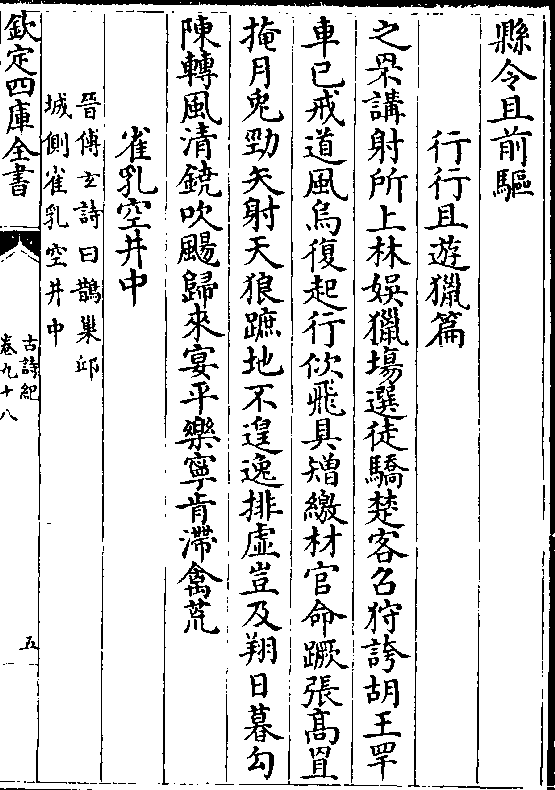 縣令且前驅
行行且遊獵篇
之罘講射所上林娛獵場選徒驕楚客召狩誇胡王罕
車已戒道風烏復起行佽飛具矰繳材官命蹶張髙罝
掩月兎勁矢射天狼蹠地不遑逸排虛豈及翔日暮勾
陳轉風清鐃吹颺歸來宴平樂寧肯滯禽荒
雀乳空井中
晉傅玄詩曰鵲巢邱
城側雀乳空井中
欽定四庫全書
古詩紀
卷九十八
五